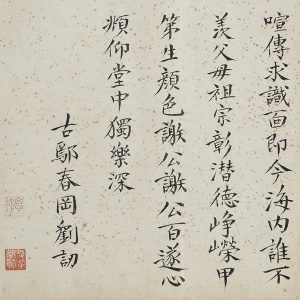 喧傳求識面即今海内誰不
羨父母祖宗彰潛德峥嶸甲
第生顔色謝公謝公百遂心
頫仰堂中獨樂深
古鄢春岡劉訒